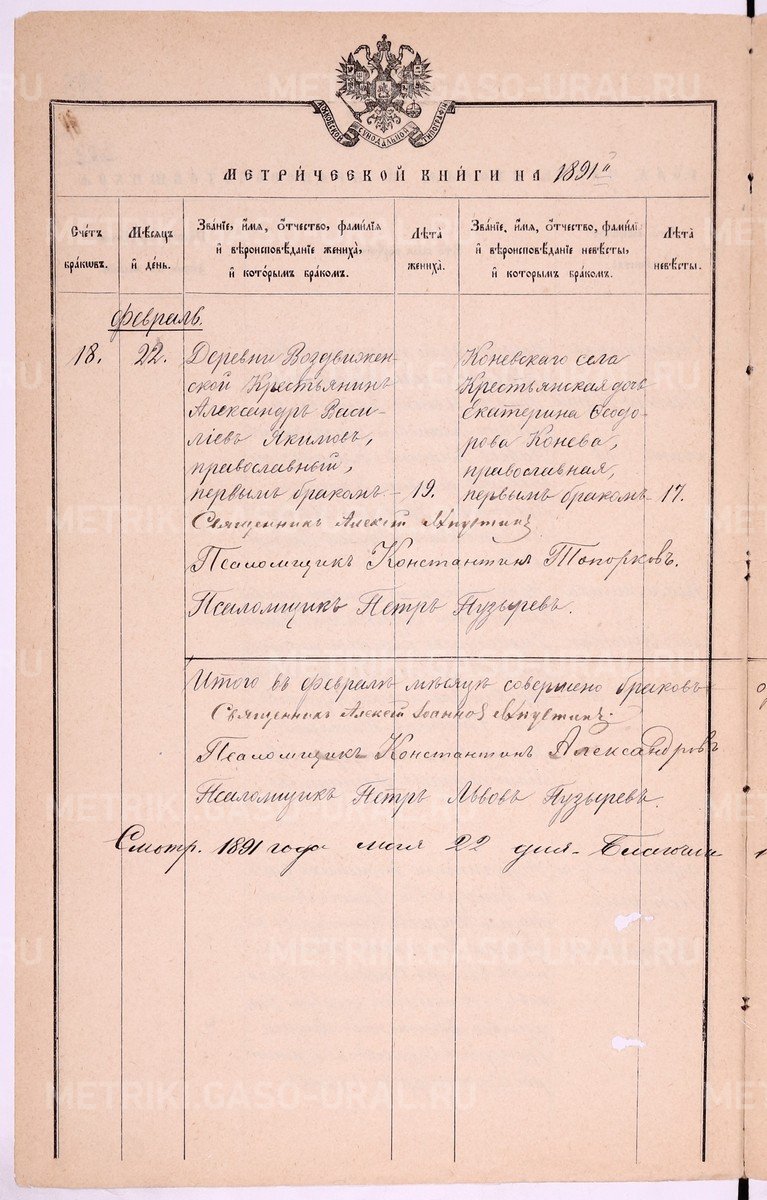 МОСКОВСКОЙ СѴНОДАЛЬНОЙ ТИПОГРАФІИ
МЕТРИ́ЧЕСКОЙ КНИ́ГИ НА 1891
Сче́тъ бра́ковъ.
Мѣ́сяцъ и҆ де́нь.
Зва́нїе, и҆́мѧ, ѻ҆́тчество, фами́лїѧ
и҆ вѣроисповѣ́данїе жениха̀,
и҆ кото́рымъ бра́комъ.
Лѣ́та жениха̀.
Зва́нїе, и҆́мѧ, ѻ҆́тчество, фами́лїѧ
и҆ вѣроисповѣ́данїе невѣ́сты,
и҆ кото́рымъ бра́комъ.
Лѣ́та невѣ́сты.
Февраль.
18. 22. Деревни Воздвижен-
ской Крестьянинъ
Александръ Васи-
ліевъ Якимовъ,
православный,
первымъ бракомъ – 19.
Коневскаго села
Крестьянская дочь
Екатерина Ѳеодо-
рова Конева,
православная,
первымъ бракомъ 17.
Священникъ Алексій
Псаломщикъ Константинъ Топорковъ.
Псаломщикъ Петръ Пузыревъ.
Итого въ февралѣ мѣсяцѣ совершено браковъ
Священникъ Алексій
Псаломщикъ Константинъ Александровъ
Псаломщикъ Петръ Львовъ Пузыревъ.
Смотр. 1891 года мая 22 дня.
METRIKI.GASO-URAL.RU